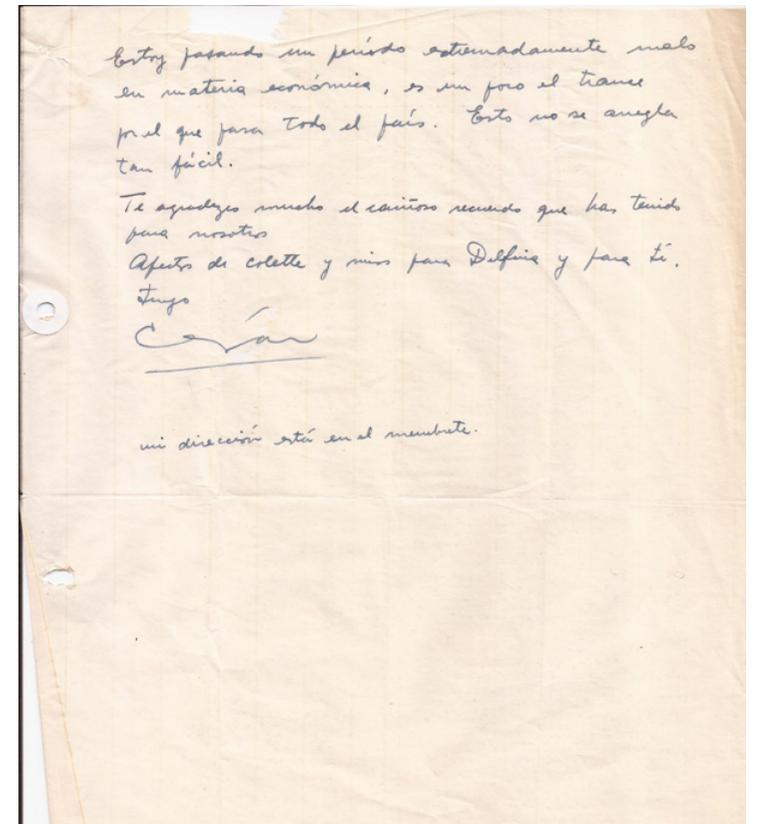 Estoy pasando un período extremadamente malo
en materia económica, es un poco el trance
por el que pasa todo el país. Esto no se arregla
tan fácil.
Te agradezco mucho el cariñoso recuerdo que has tenido
para nosotros
Afectos de colette y mios para Delfina y para tí.
tuyo
César
mi dirección está en el membrete.